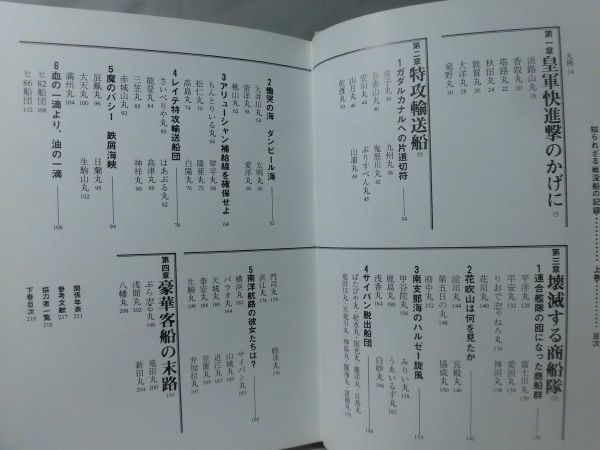 知られざる戦没船の記録 上巻 目次
凡例 14
第一章 皇軍快進撃のかげに 15
淡路山丸 18
香取丸 20
塔路丸 22
秋田丸 24
敦賀丸 26
大洋丸 28
竜野丸 30
第二章 特攻輸送船 33
1 ガダルカナルへの片道切符 34
笹子丸 36
九州丸 38
吾妻山丸 40
鬼怒川丸 42
安川丸
ぶりすべん丸 45
山月丸 46
山浦丸 49
佐渡丸 50
2 慟哭の海 ダンピール海 52
大井川丸 54
太明丸 56
帝洋丸 58
愛洋丸 60
桃山丸 62
3 アリューシャン補給線を確保せよ 64
もんとりいる丸 66
琴平丸 68
松仁丸 70
隆亜丸 72
高島丸 74
白陽丸 76
4 レイテ特攻輸送船団 78
さいべりや丸 80
はあぶる丸 82
能登丸 84
高津丸 86
三笠丸 88
神祥丸 90
赤城山丸 92
5 魔のバシー 鉄屑海峡 94
辰鳳丸 96
日蘭丸 98
大天丸 100
生駒山丸 102
満州丸 104
6 血の一滴より、油の一滴 106
ヒ82船団 108
ヒ86船団 112
第三章 壊滅する商船隊 125
1 連合艦隊の囮になった商船群 126
平洋丸 128
富士川丸 130
平安丸 132
愛国丸 134
りおでじゃねろ丸 136
神国丸 138
花川丸 140
2 花咲山は何を見たか 142
淀川丸 144
宮殿丸 146
第五日の丸 148
協成丸 150
府中丸 152
3 南支那海のハルゼー旋風 154
甲谷陀丸 156
みりい丸 158
鹿島丸 160
うゐいるず丸 162
浅香丸 164
4 サイパン脱出船団 166
白妙丸 166
5 南洋航路の彼女たちは? 180
門司丸 174
睦洋丸 176
浜江丸 178
横浜丸 181
サイパン丸 183
パラオ丸 184
山城丸 185
天城丸 186
近江丸 187
泰安丸 188
笠置丸 189
生駒丸 190
弁加拉丸 191
第四章 豪華客船の末路 193
ぶら志る丸 196
竜田丸 200
浅間丸 202
新田丸 204
八幡丸 208
関係年表 211
参考文献 217
協力者一覧 218
下巻目次 219